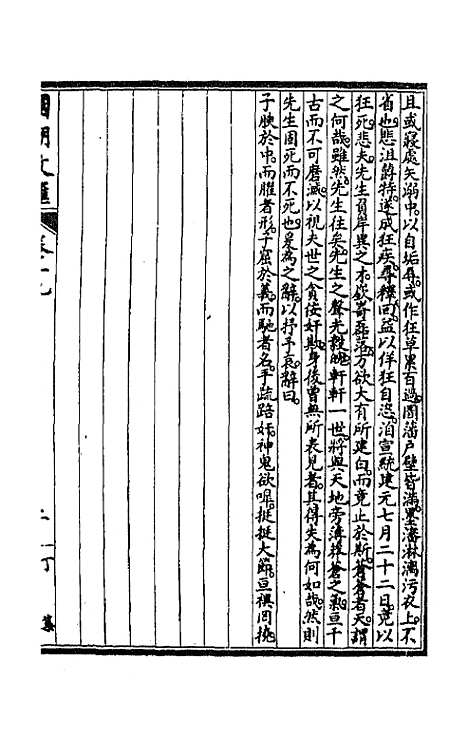 且或寢處矢溺中以自垢辱或作狂草累百過圂藩户壁皆滿墨瀋淋漓污衣上不
省也悲沮鬱特遂成狂疾尋釋回益以佯狂自恣洎宣統建元七月二十二日竟以
狂死悲夫先生負岸異之才嶔崎磊落方欲大有所建白而竟止於斯蒼蒼者天謂
之何哉雖然先生往矣先生之聲光毅魄軒軒一世將與天地旁薄蒼之氣亘千
古而不可磨滅以視夫世之貪佞奸欺身後曾無所表見者其得失為何如哉然則
先生固死而不死也爰為之辭以抒予哀辭曰
子腴於中而臞者形子窟於義而馳者名手疏路奸神鬼欲嘷挺挺大節亘禩罔撓
國朝文匯
卷十九